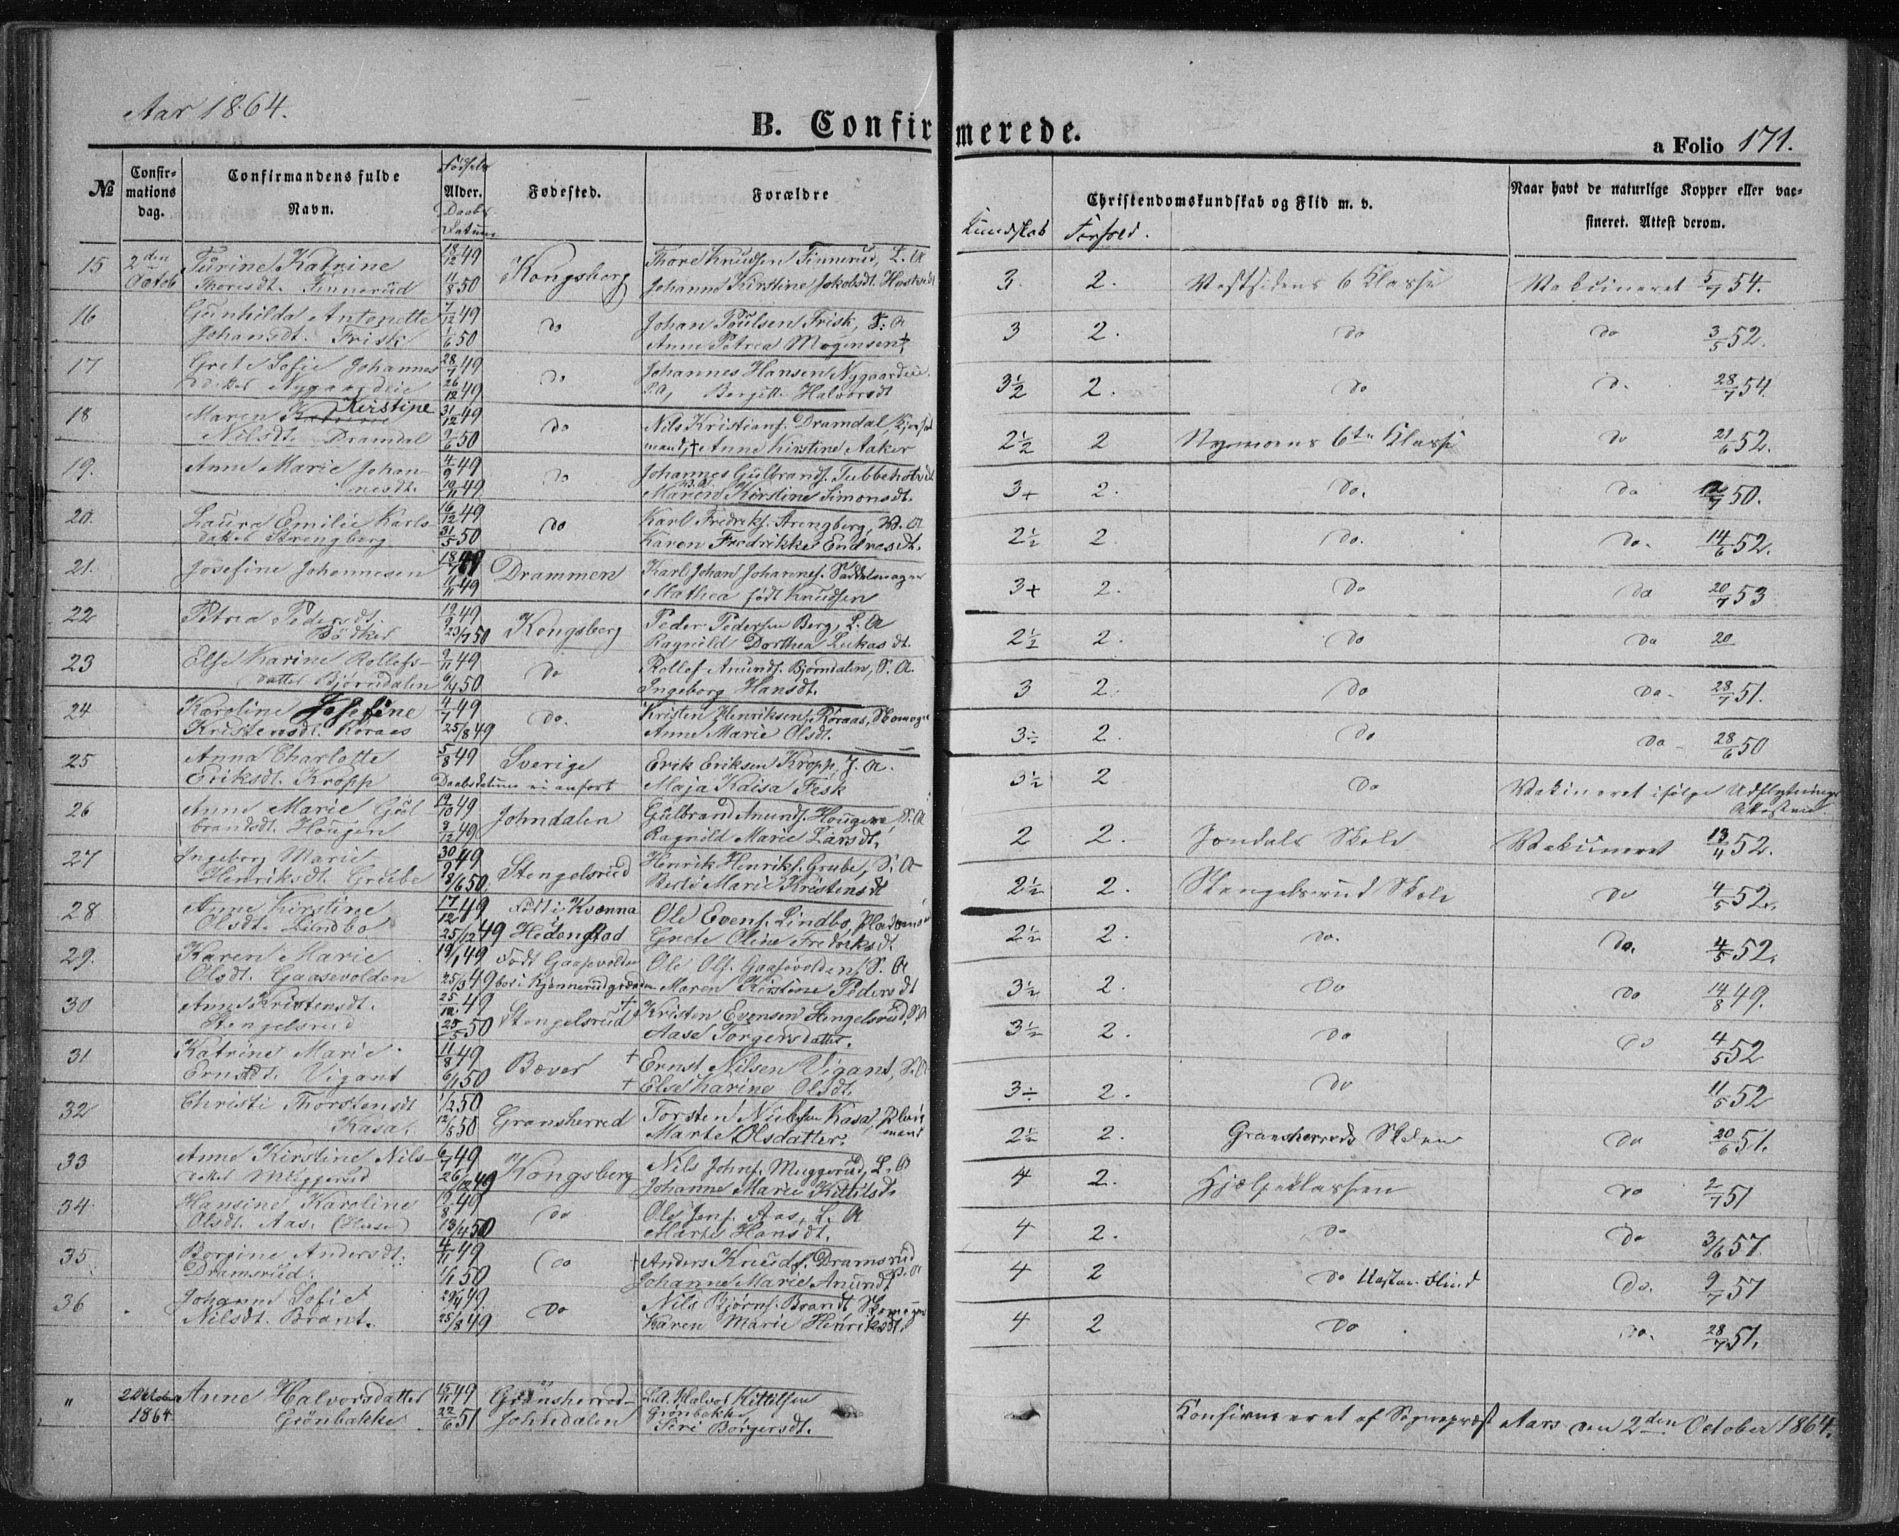 Aar 1864.
B. Confirmerede.
a Folio 171.
№ Confirmations dag. Confirmandens fulde Navn. Fødsels Alder. Daabs Datum Fødested. Forældre Kundskab Forhold. Christendomskundskab og Flid m. v. Naar havt de naturlige Kopper eller vaccineret. Attest derom.
15 2den Octob Turine Katrine 18/12 49 Kongsberg Thore Knudsen Finnerud, L. A 3. 2. Vestsidens 6 Klasse Vakcineret 5/7 54.
Thoresdt. Finnerud 11/8 50 Johanne Kirstine Jakobsdt.
16 Gunhilda Antonette 7/12 49 do Johan Poulsen Frisk, 3 2. do do 3/5 52.
Johansdt. Frisk 1/6 50 Anne Petrea Mogensen
17 Grete Sofie Johannes 28/7 49 do Johannes Hansen Nygaardeie 3½ 2. do 28/7 54.
datter Nygaardeie 26/12 49 Bergitte Halvorsdt
18 Maren Kirstine 31/12 49 do Nils Kristians. Dramdal 2½ 2 Nymoens 6te Klasse do 21/6 52.
Nilsdt. Dramdal 9/6 50 mand, + Anne Kirstine Aaker
19. Anne Marie Johan- 4/9 49 do Johannes Gulbrands. 3+ 2. do. do 50.
nesdt. 19/11 49 Maren Kirstine Simonsdt.
20. Laura Emilie Karls- 16/12 49 do Karl Fredriks. Strengberg, 2½ 2. do. do. 14/6 52.
datter Strengberg 31/5 50 Karen Fredrikke Endresdt.
21. Josefine Johannesen 18/7 49 Drammen Karl Johan Johannes. Saddelmager 3+ 2. do da 20/7 53
11/11 49 Mathea født Knudsen
22 Petrea Pedersdt. 19/9 49 Kongsberg Peder Pedersen Berg, L. A 2½ 2. do da 20
Bødker 23/7 50 Ragnild Dorthea Lukasdt.
23 Else Karine Rollefs- 9/11 49 do Rollef Anunds. Bjørndalen, S. A. 3 2. do da. 28/7 51.
datter Bjørndalen 6/4 50 Ingeborg Hansdt.
24 Karoline Josefine 4/7 49 do. Kristen Henriksen Roraas, Skomager 3÷ 2. do da 28/6 50
Kristensdt. Roraas 25/8 49 Anne Marie Olsdt.
25 Anna Charlotte 5/8 49 Sverige Erik Eriksen Kropp, J. A. 3½ 2 do Vakcineret ifølge Udflytnings
Eriksdt. Kropp Daabsdatum ei anført Maja Kaisa Fisk Attesten.
26 Anne Marie Gul 19/10 49 Johndalen Gulbrand Anunds. Hougen, S. A 2 2. Jondals Skole Vakcineret 13/4 52.
brandsdt. Hougen 9/12 49 Ragnild Marie Larsdt.
27 Ingeborg Marie 30/9 49 Stengelsrud Henrik Henriks. Grube, S. A 2½ 2. Stengelsrud Skole do 4/5 52.
Henriksdt. Grube 8/6 50. Berte Marie Kristensdt
28 Anne Kirstine 17/12 49 Født i Kvænna Ole Evens. Lindbo, 2½ 2. do. do. 4/5 52.
Olsdt. Lindbo 25/12 49 Hedenstad Grete Oline Fredriksdt.
29. Karen Marie 19/1 49 Født Gaasevolden Ole Ols. Gaasevolden, S. A 3½ 2. Do do 14/8 49.
Olsdt. Gaasevolden 25/3 49 bor i Kjennerudgrænden Maren Kirstine Pedersdt
30 Anne Kristensdt. 25/12 49 Stengelsrud + Kristen Evensen Stengelsrud, S A 3½ 2. do do 4/5 52
Stengelsrud 25/5 50 Aase Torgersdatter.
31 Katrine Marie 11/8 49 Bæver + Ernst Nilsen Vigant, S. A 3÷ 2. do 11/5 52
Ernstdt. Vigant 6/1 50 + Else Karine Olsdt.
32 Christi Thorstensdt 1/2 50 Gransherred Torsten Nielsen Kasa, Plads 2½ 2. Gransherreds Skolen do 20/6 51.
Kasa. 12/5 50 Marte Olsdatter. mand
33 Anne Kirstine Nils- 6/7 49 Kongsberg Nils Johns. Muggerud, L. A 4 2. Hjælpeklassen do 2/7 51
datter Muggerud 26/12 49 Johanne Marie Kittilsdt.
34 Hansine Karoline 19/8 49 do Ole Jens. Aas, L. A 4 2. do do 3/6 57.
Olsdt. Aas. 13/4 50 Marte Hansdt.
35 Borgine Andersdt. 4/11 49 do + Anders Knuds. Dramsrud 4 2 do Næsten blind do. 9/7 57
Dramsrud. 1/1 50 Johanne Marie Anundt
36 Johanne Sofie 29/4 49 do Nils Bjørns. Brandt Skomager 4 2 do do. 28/7 51.
Nilsdt. Brant. 25/8 49 Karen Marie Henriksdt.
" 2 October 1864 Anne Halvorsdatter 15/11 49 Gransherred- L. A. Halvor Kittilsen
Grønbakke 22/6 51 Johndalen Grønbakke
Siri Børgersdt.
Konfirmeret af Sognepræst Aars den 2den October 1864.